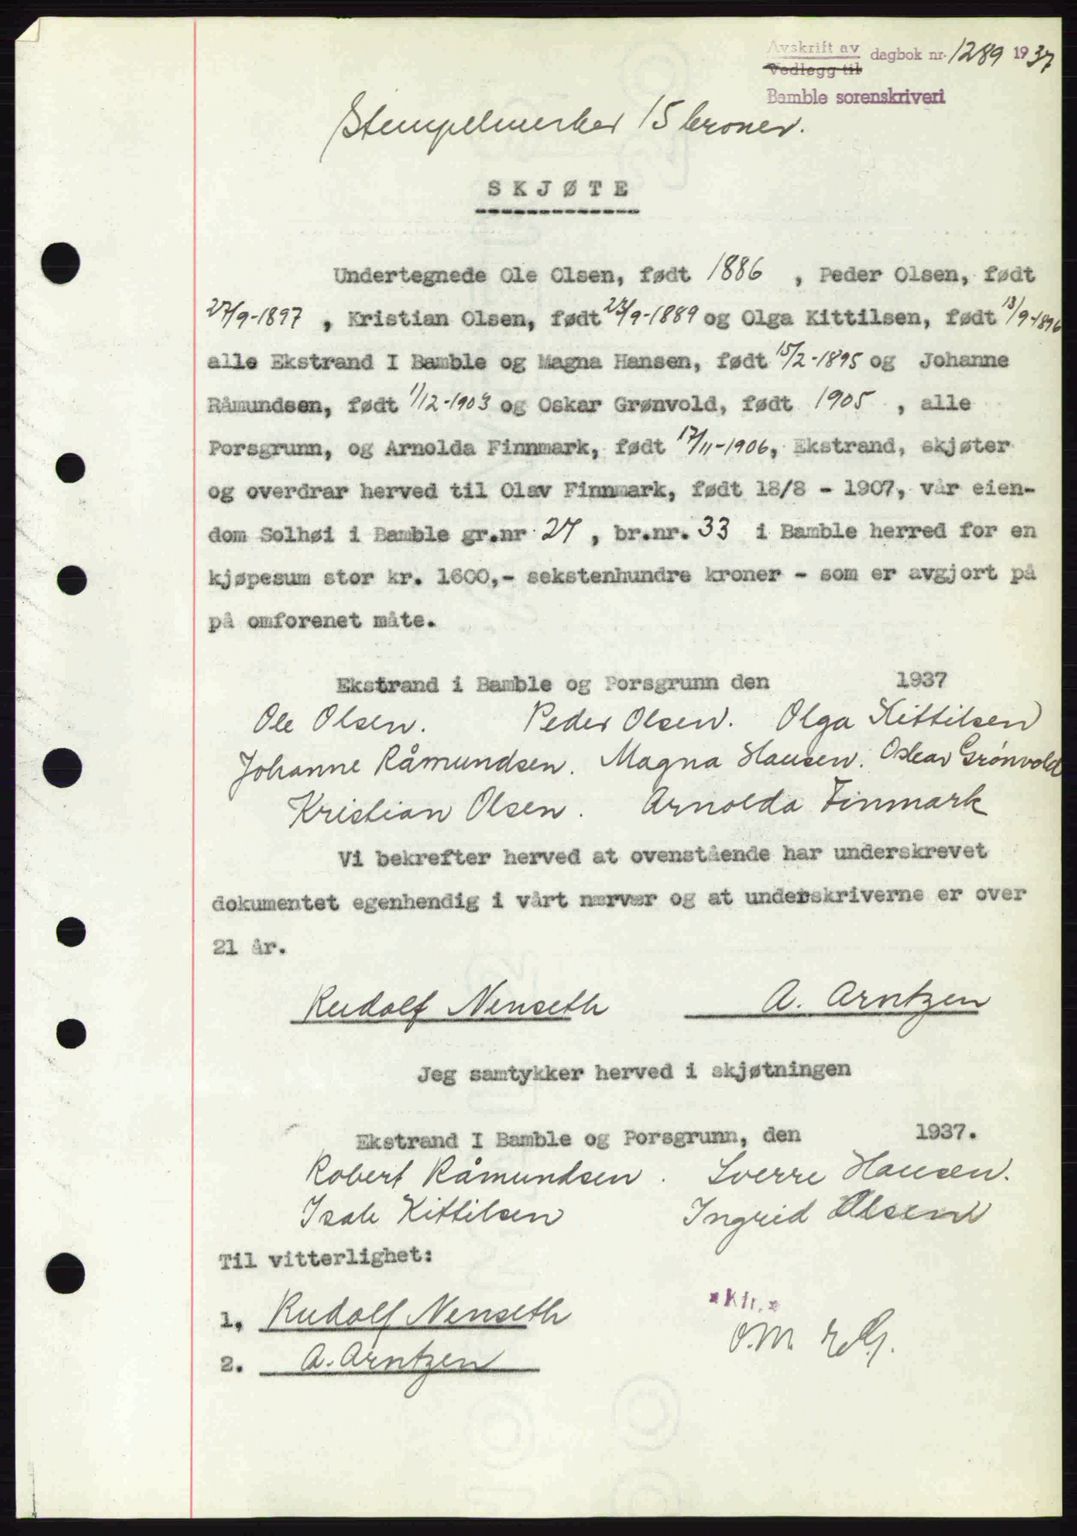 Avskrift av
Vedlegg til dagbok nr. 1289 1937
Bamble sorenskriveri
Stempelmerker 15 kroner.
SKJØTE
Undertegnede Ole Olsen, født 1886 , Peder Olsen, født
27/9-1897 , Kristian Olsen, født 23/9-1889 og Olga Kittilsen, født 13/9-1896
alle Ekstrand I Bamble og Magna Hansen, født 15/2-1895 og Johanne
Råmundsen, født 1/12-1903 og Oskar Grønvold, født 1905 , alle
Porsgrunn, og Arnolda Finnmark, født 17/11-1906, Ekstrand, skjøter
og overdrar herved til Olav Finnmark, født 18/8 - 1907, vår eien-
dom Solhøi i Bamble gr.nr 27 , br.nr. 33 i Bamble herred for en
kjøpesum stor kr. 1600,- sekstenhundre kroner - som er avgjort på
på omforenet måte.
Ekstrand i Bamble og Porsgrunn den 1937
Ole Olsen. Peder Olsen. Olga Kittilsen
Johanne Råmundsen. Magna Hansen. Oskar Grønvold
Kristian Olsen. Arnolda Finmark
Vi bekrefter herved at ovenstående har underskrevet
dokumentet egenhendig i vårt nærvær og at underskriverne er over
21 år.
Rudolf Nenseth A. Arntzen
Jeg samtykker herved i skjøtningen
Ekstrand I Bamble og Porsgrunn, den 1937.
Robert Råmundsen. Sverre Hansen.
Isak Kittilsen Ingrid Olsen
Til vitterlighet:
1, Rudolf Nenseth
2. A. Arntzen